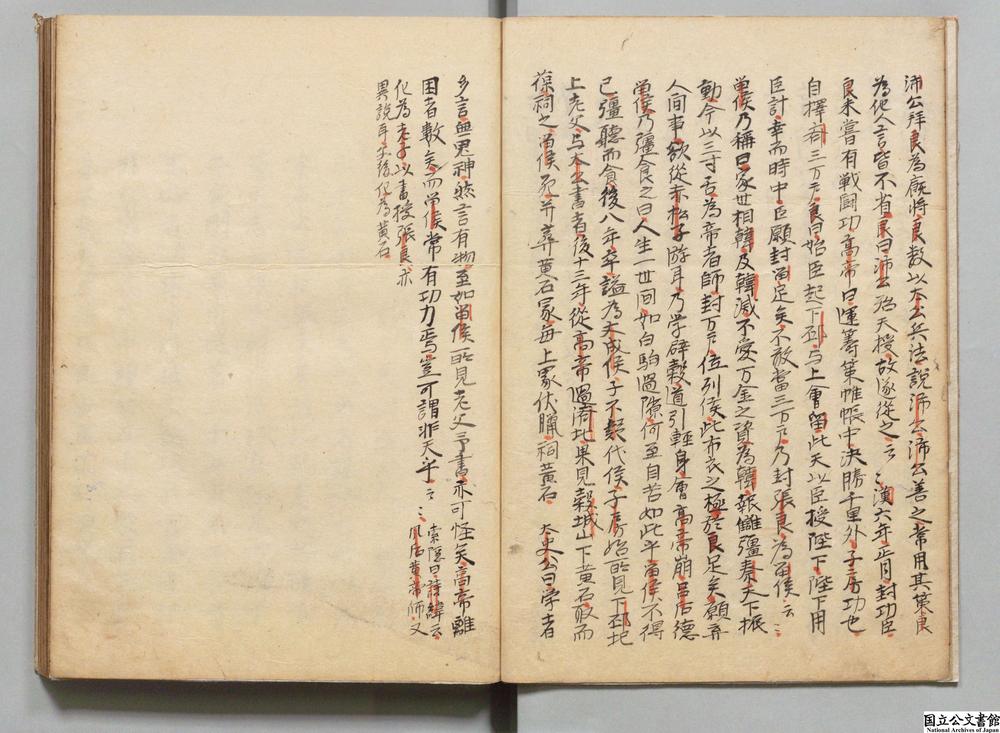 沛公拜良為廐將良数以太公兵法說沛公沛公善之常用其策良
為他人言皆不省良曰沛公殆天授故遂從之云〻漢六年正月封功臣
良未嘗有戰鬪功高帝曰運籌策帷帳中決勝千里外子房功也
自擇斉三万戸良曰始臣起下邳与上會留此天以臣授陛下陛下用
臣計幸而時中臣願封留足矣不敢當三万戸乃封張良為留侯云〻
留侯乃稱曰家世相韓及韓滅不愛万金之資為韓報讎彊秦天下振
動今以三寸舌為帝者師封万戸位列侯此布衣之極於良足矣願弃
人間事欲從赤松子游耳乃学辟穀道引輕身會高帝崩呂后德
留侯乃彊食之曰人生一世間如白駒過隙何至自苦如此乎留侯不得
已彊聽而食後八年卒謚為文成侯子不疑代侯子房始所見下邳圯
上老父与太公書者後十三年從高帝過濟北果見穀城山下黄石取而
葆祠之留侯死并葬黄石冢每上冢伏臘祠黄石 太史公曰学者
多言無鬼神然言有物至如留侯所見老父予書亦可怪矣高帝離
困者数矣而留侯常有功力焉豈可謂非天乎云〻 索隠曰詩緯云
風后黄帝師又
化為老子以書授張良亦
異說耳
化為黄石
国立公文書館
National Archives of Japan